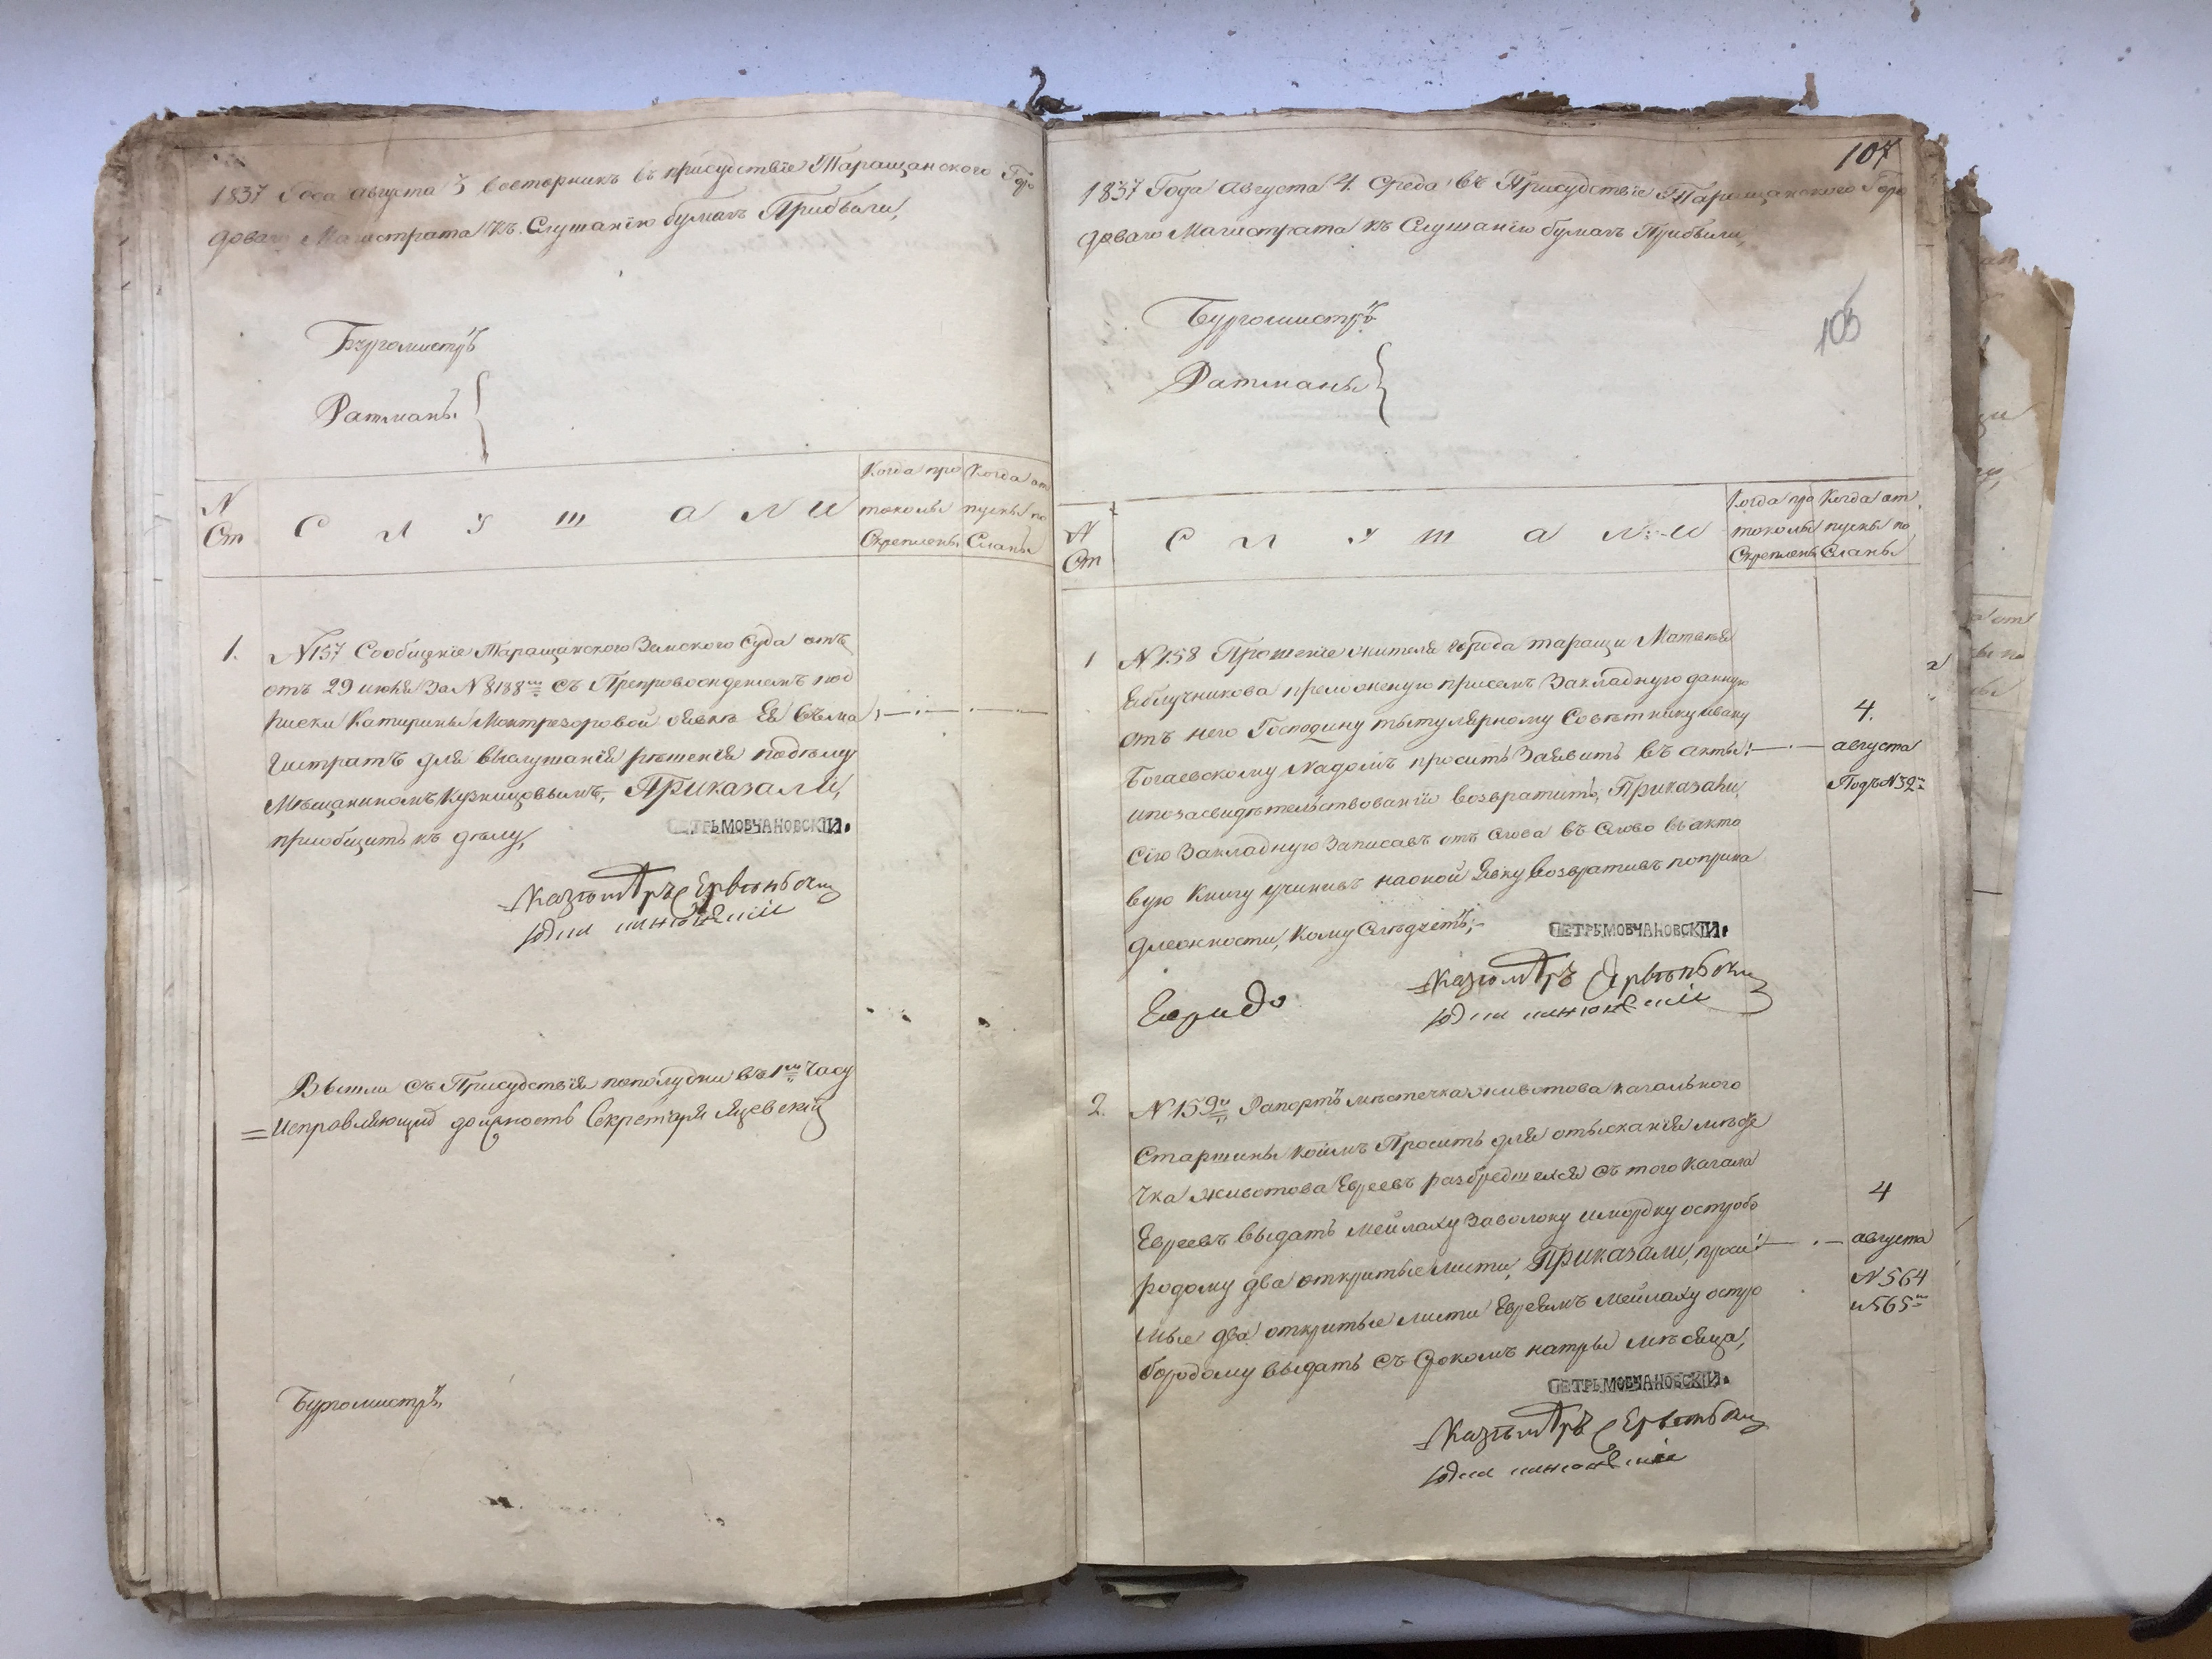 1837 Года августа 3 вовторникъ въ присудствіе Таращанского Горо
доваго Магистрата къ Слушанію бумагъ Прибыли,
Бургомистръ
Ратманы
N
Ст
С л у ш а л и
Когда про
токолы
Скреплены
Когда от
пуски по
Сланы
1.
N157 Сообщеніе Таращанского Земского Суда отъ
отъ 29 июня За N 8188м съ Препровождениемъ под
писки Катирины Монтрезоровой явке Ея въ Ма
гистратъ для выслушанія решенія поделу
Мещаниномъ Кузнецовымъ, Приказали,
приобщить къ делу,
ПЕТРЪ МОВЧАНОВСКІЙ.
Вышли съ Присудствія пополудни въ 1м часу
Исправляющій должность Секретаря Яцевскій
Бургомистръ,
107
1837 Года Августа 4. Среда въ Присудствіе Таращанского Горо
доваго Магистрата къ Слушанію бумагъ Прибыли,
105
Бургомистръ
Ратманы
N
Ст
С л у ш а л и
Когда про
токолы
Скреплены
Когда от
пуски по
Сланы
1
N158 Прошеніе жителя города таращи Матвея
Яблучникова приложеную присемъ Закладную данную
отъ него Господину тытулярному Советнику Ивану
Богаевскому надомъ просить Заявить въ акты
ипозасвидетельствованію возвратить, Приказали,
Сію Закладную Записавъ отъ слова въ слово въ акто
вую Книгу учинивъ наоной Явку возвративъ поприна
длежности, Кому Следуетъ;
4.
августа
Подъ N32м
ПЕТРЪ МОВЧАНОВСКІЙ.
2.
N159м Рапортъ местечка животова кагального
Старшины коимъ Просить для отысканія месте
чка животова Евреевъ разбредшехся съ того кагала
Евреевъ выдать Мейлаху Заволоку имордку остробо
родому два откритые листи, Приказали, проси
мые два откритые листи Евреямъ Мейлаху остро
бородому выдать съ срокомъ натры месяца,
4
августа
N564
и 565м
ПЕТРЪ МОВЧАНОВСКІЙ.